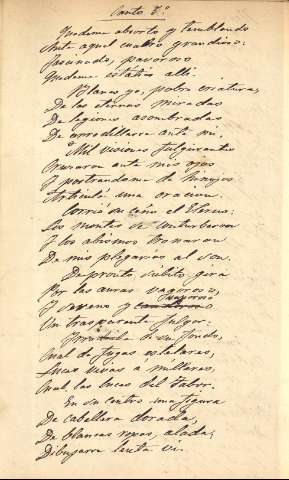 Canto 5º
Quedeme absorto y temblando
Ante aquel cuadro grandioso:
Fascinado, pavoroso
Quedeme estático allí.
Blanco yo, pobre criatura,
De las eternas miradas
De legiones asombradas
De arrodillarse ante mí.
Mil visiones fulgurantes
Cruzaron ante mis ojos
Y postrandome de hinojos
Articulé una oracion.
Corrió su ceño el Eterno:
Los montes se conturbaron
Y los abismos tronaron
De mis plegarias al son.
De pronto, subito gira
Por las auras vagoroso,
Y sereno y vaporoso
Un trasparente fulgor:
en su fondo,
Cual de fugas estelares,
Luces vivas a millares,
Cual las luces del Tabor.
En su centro una figura
De cabellera dorada,
De blancas ropas, alada,
Dibujarse lenta ví.